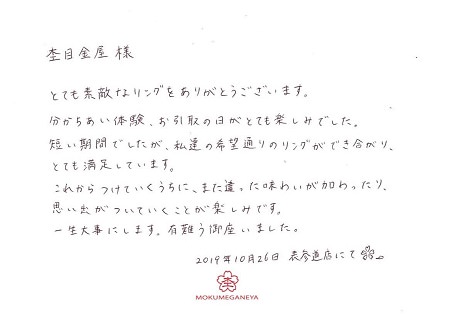 杢目金屋 様
とても素敵なリングをありがとうございます。
分かちあい体験、お引取の日がとても楽しみでした。
短い期間でしたが、私達の希望通りのリングができ合がり、
とても満足しています。
これからつけていくうちに、また違った味わいが加わったり、
思い出がついていくことが楽しみです。
一生大事にします。有難う御座いました。
2019年10月26日 表参道店にて
杢
MOKUMEGANEYA